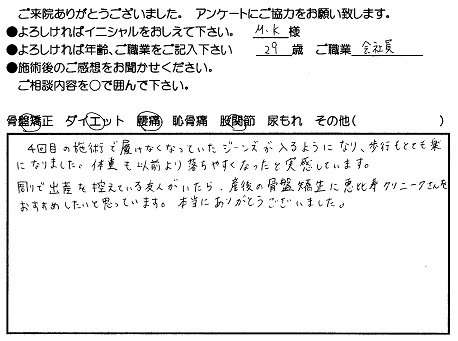 ご来院ありがとうございました。 アンケートにご協力をお願い致します。
●よろしければイニシャルをおしえて下さい。 M.K 様
●よろしければ年齢、ご職業をご記入下さい 29 歳 ご職業 会社員
●施術後のご感想をお聞かせください。
ご相談内容を○で囲んで下さい。
骨盤矯正 ダイエット 腰痛 恥骨痛 股関節 尿もれ その他( )
4回目の施術で履けなくなっていたジーンズが入るようになり、歩行もとても楽
になりました。体重も以前より落ちやすくなったと実感しています。
周りで出産を控えている友人がいたら、産後の骨盤矯正に恵比寿クリニークさんを
おすすめしたいと思っています。本当にありがとうございました。